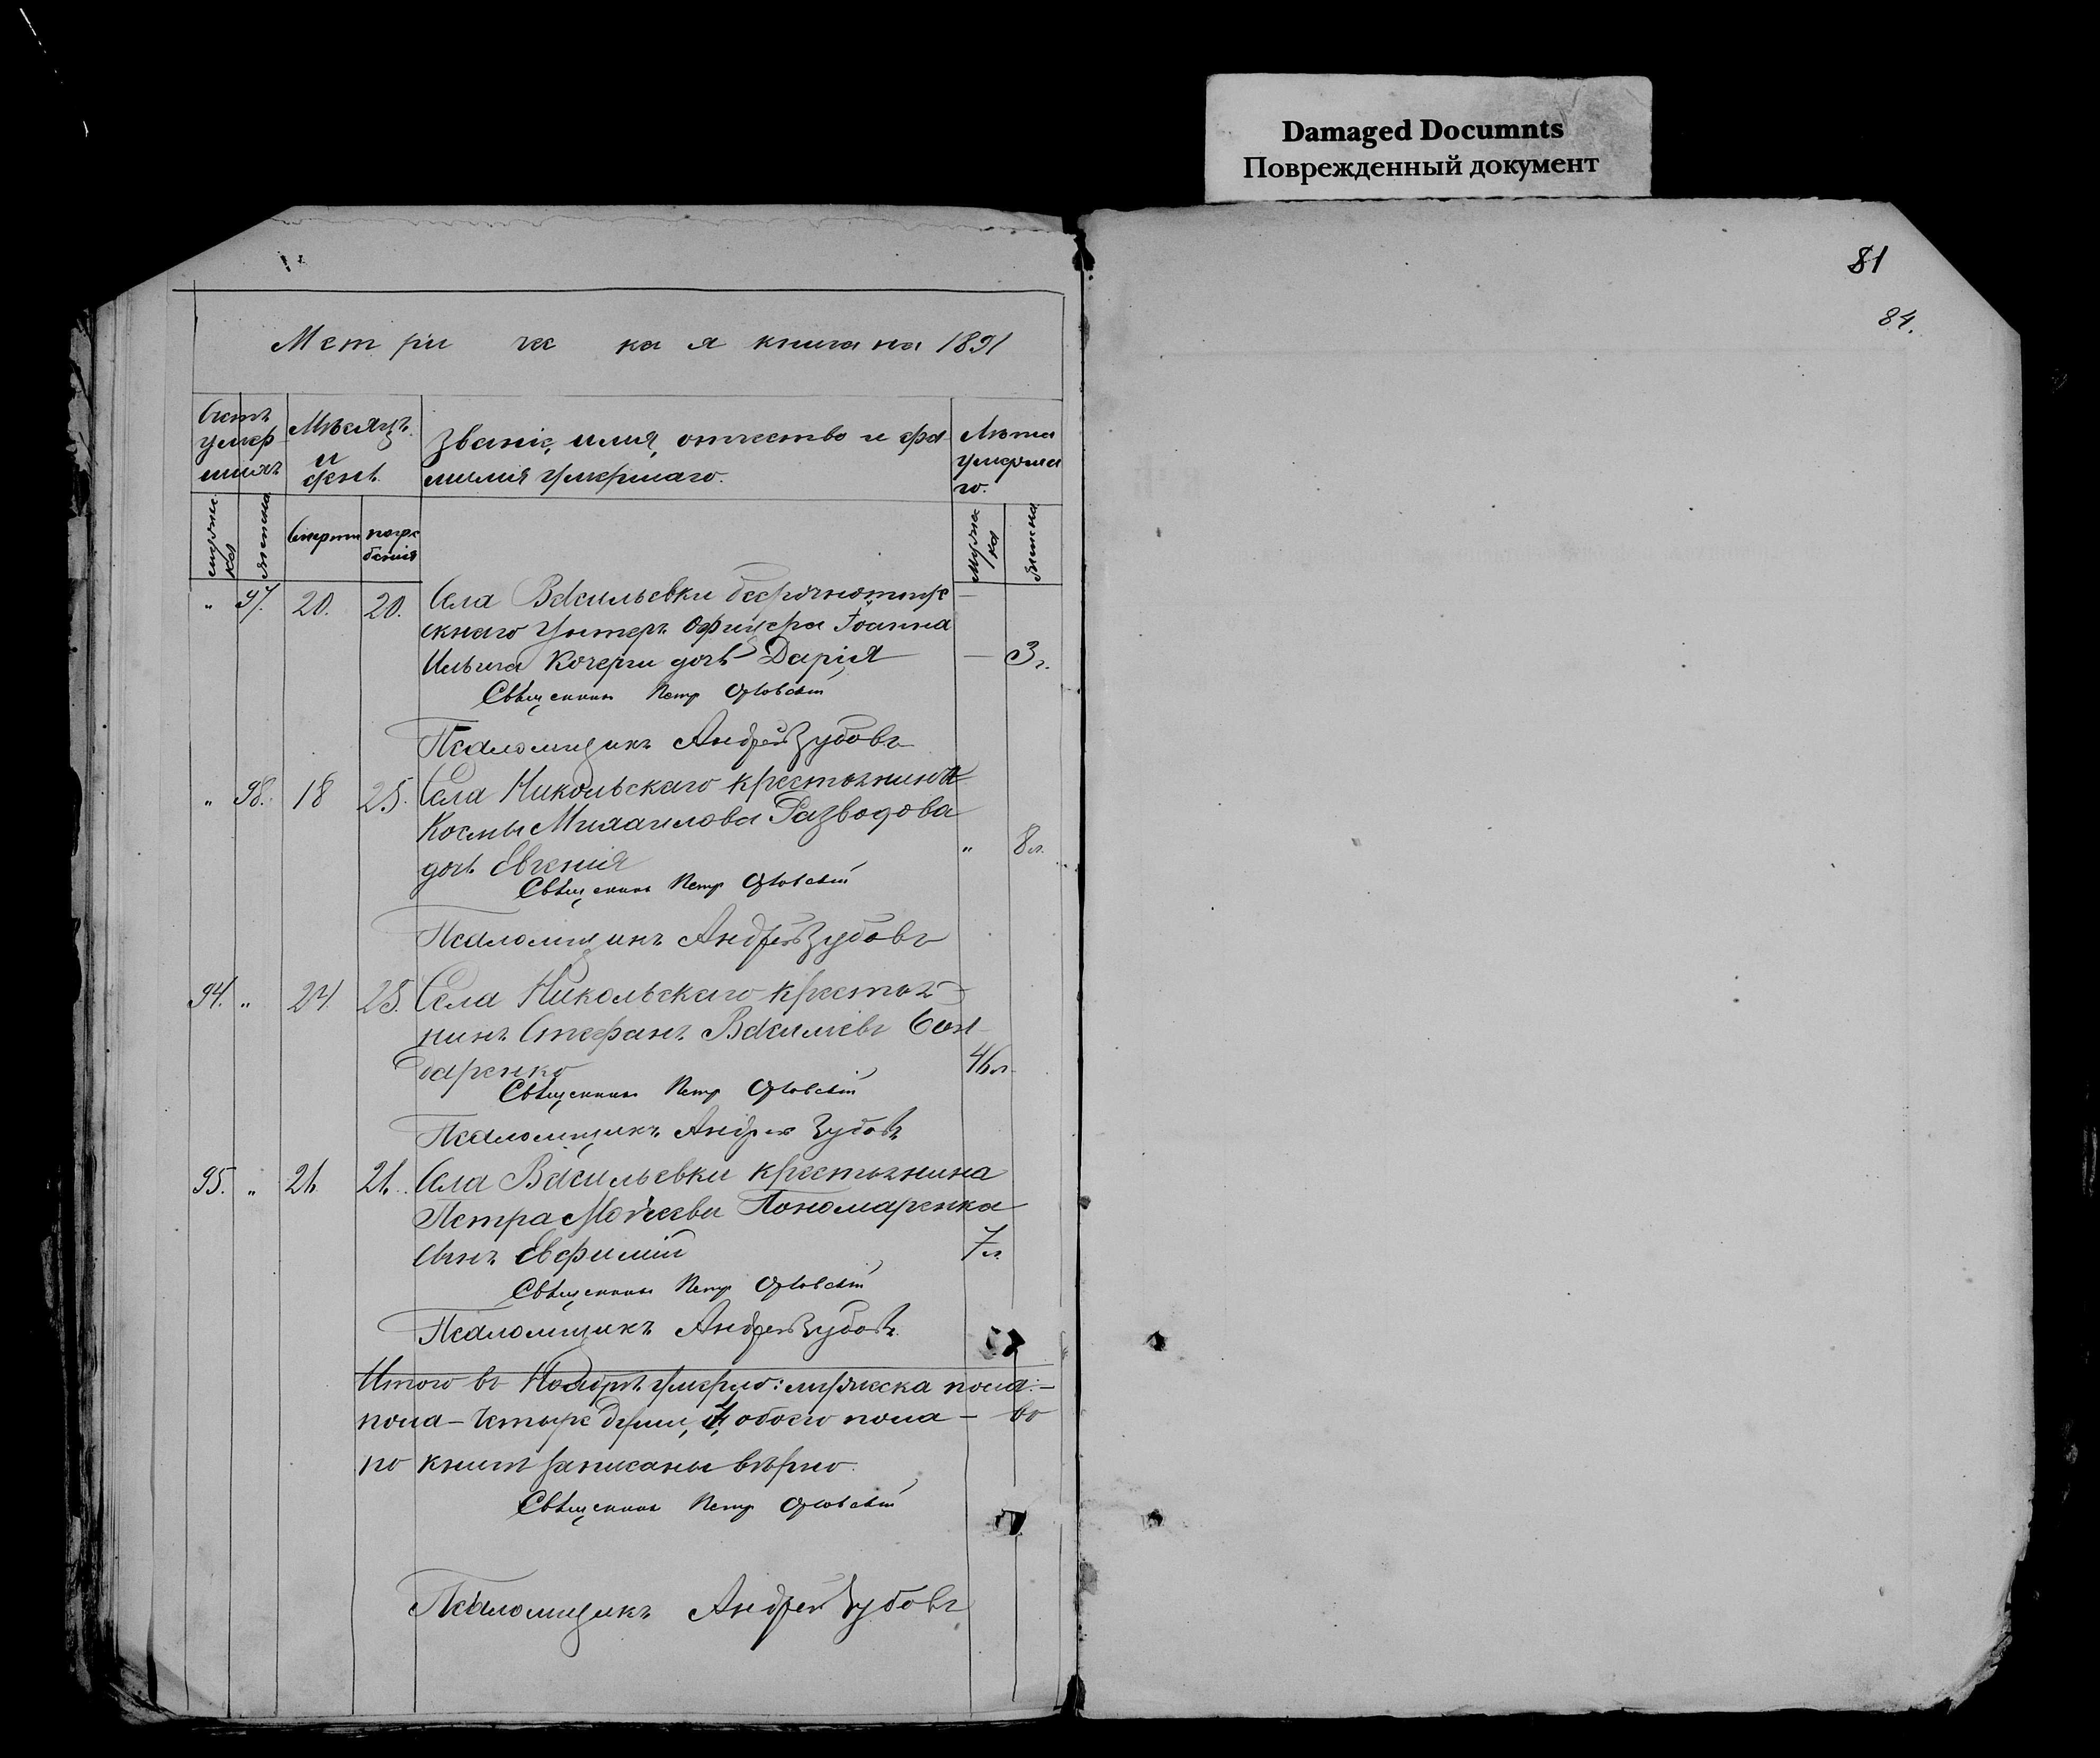 Damaged Documnts
Поврежденный документ
81
84.
Метри че ка я книга на 1891
Счетъ умер шихъ
Мѣсяцъ и день.
Званіе, имя, отчество и фа
милія умершаго.
Лѣта умерша го.
мужес ка
женска
Смерти
погре бенія
мужес ка
женска
" 97. 20. 20. Села Васильевки безсрочноотпус
скнаго Унтеръ Офицера Іоанна
Ильина Кочерги дочь Дарія — 3 г.
Священникъ Петр Орловскій
Псаломщикъ Андрей Зубовъ
" 98. 18 25. Села Никольскаго крестьянина
Космы Михаилова Разводова
дочь Евгенія " 8 л.
Священникъ Петр Орловскій
Псаломщикъ Андрей Зубовъ
94. " 24. 25. Села Никольскаго крестья
нинъ Стефанъ Васильевъ Бон
даренко 46 л.
Священникъ Петр Орловскій
Псаломщикъ Андрей Зубовъ
95. " 26. 26. Села Васильевки крестьянина
Петра Моисеева Пономаренка
сынъ Евфимій 7 л.
Священникъ Петр Орловскій
Псаломщикъ Андрей Зубовъ
Итого въ Ноябрѣ умерло: мужеска пола:—
пола — четыре души, обоего пола — во
по книгѣ записаны вѣрно.
Священникъ Петр Орловскій
Псаломщикъ Андрей Зубовъ